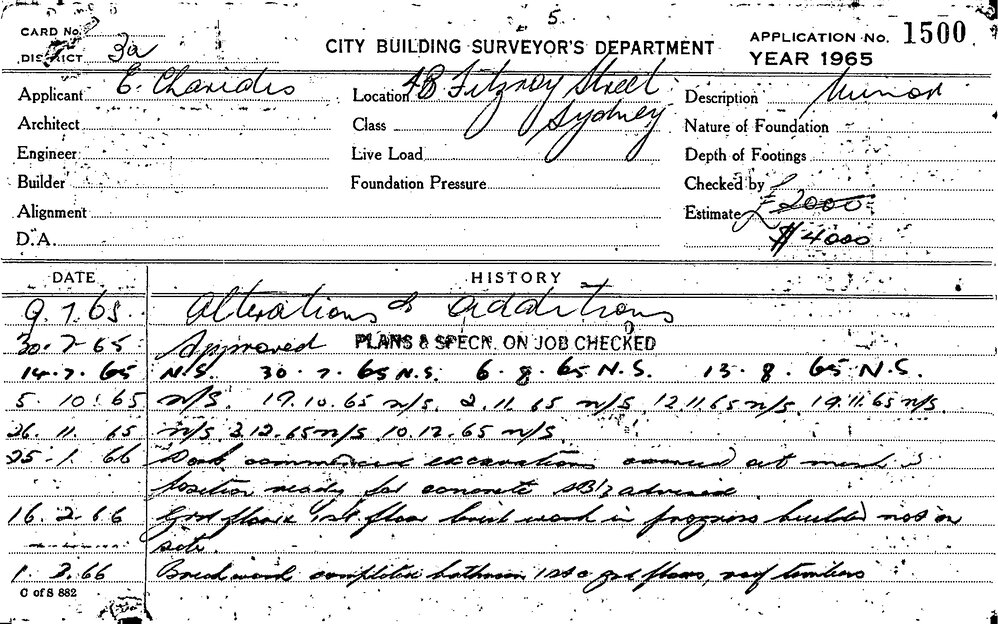 5.
CARD No.
DISTRICT 3a
CITY BUILDING SURVEYOR'S DEPARTMENT
APPLICATION No. 1500
YEAR 1965
Applicant E. Charidis
Location 4B Fitzroy Street
Sydney
Description Minor
Architect
Class
Nature of Foundation
Engineer
Live Load
Depth of Footings
Builder
Foundation Pressure
Checked by
Alignment
Estimate £2000
$4000
D.A.
DATE HISTORY
9.7.65 Alterations & additions
30-7-65 Approved PLANS & SPECN. ON JOB CHECKED
14.7.65 N.S. 30.7.65 N.S. 6.8.65 N.S. 13.8.65 N.S.
5.10.65 n/s. 19.10.65 n/s. 2.11.65 n/s 12.11.65 n/s 19.11.65 n/s.
26.11.65 n/s 3.12.65 n/s 10.12.65 n/s
25.1.66 commenced excavations mesh in
position ready for concrete advised
16.2.66 Grd floor & 1st floor brick work in progress builder not on
site.
1.3.66 Brickwork completed bathroom 1st & grd floors, roof timbers
C of S 882